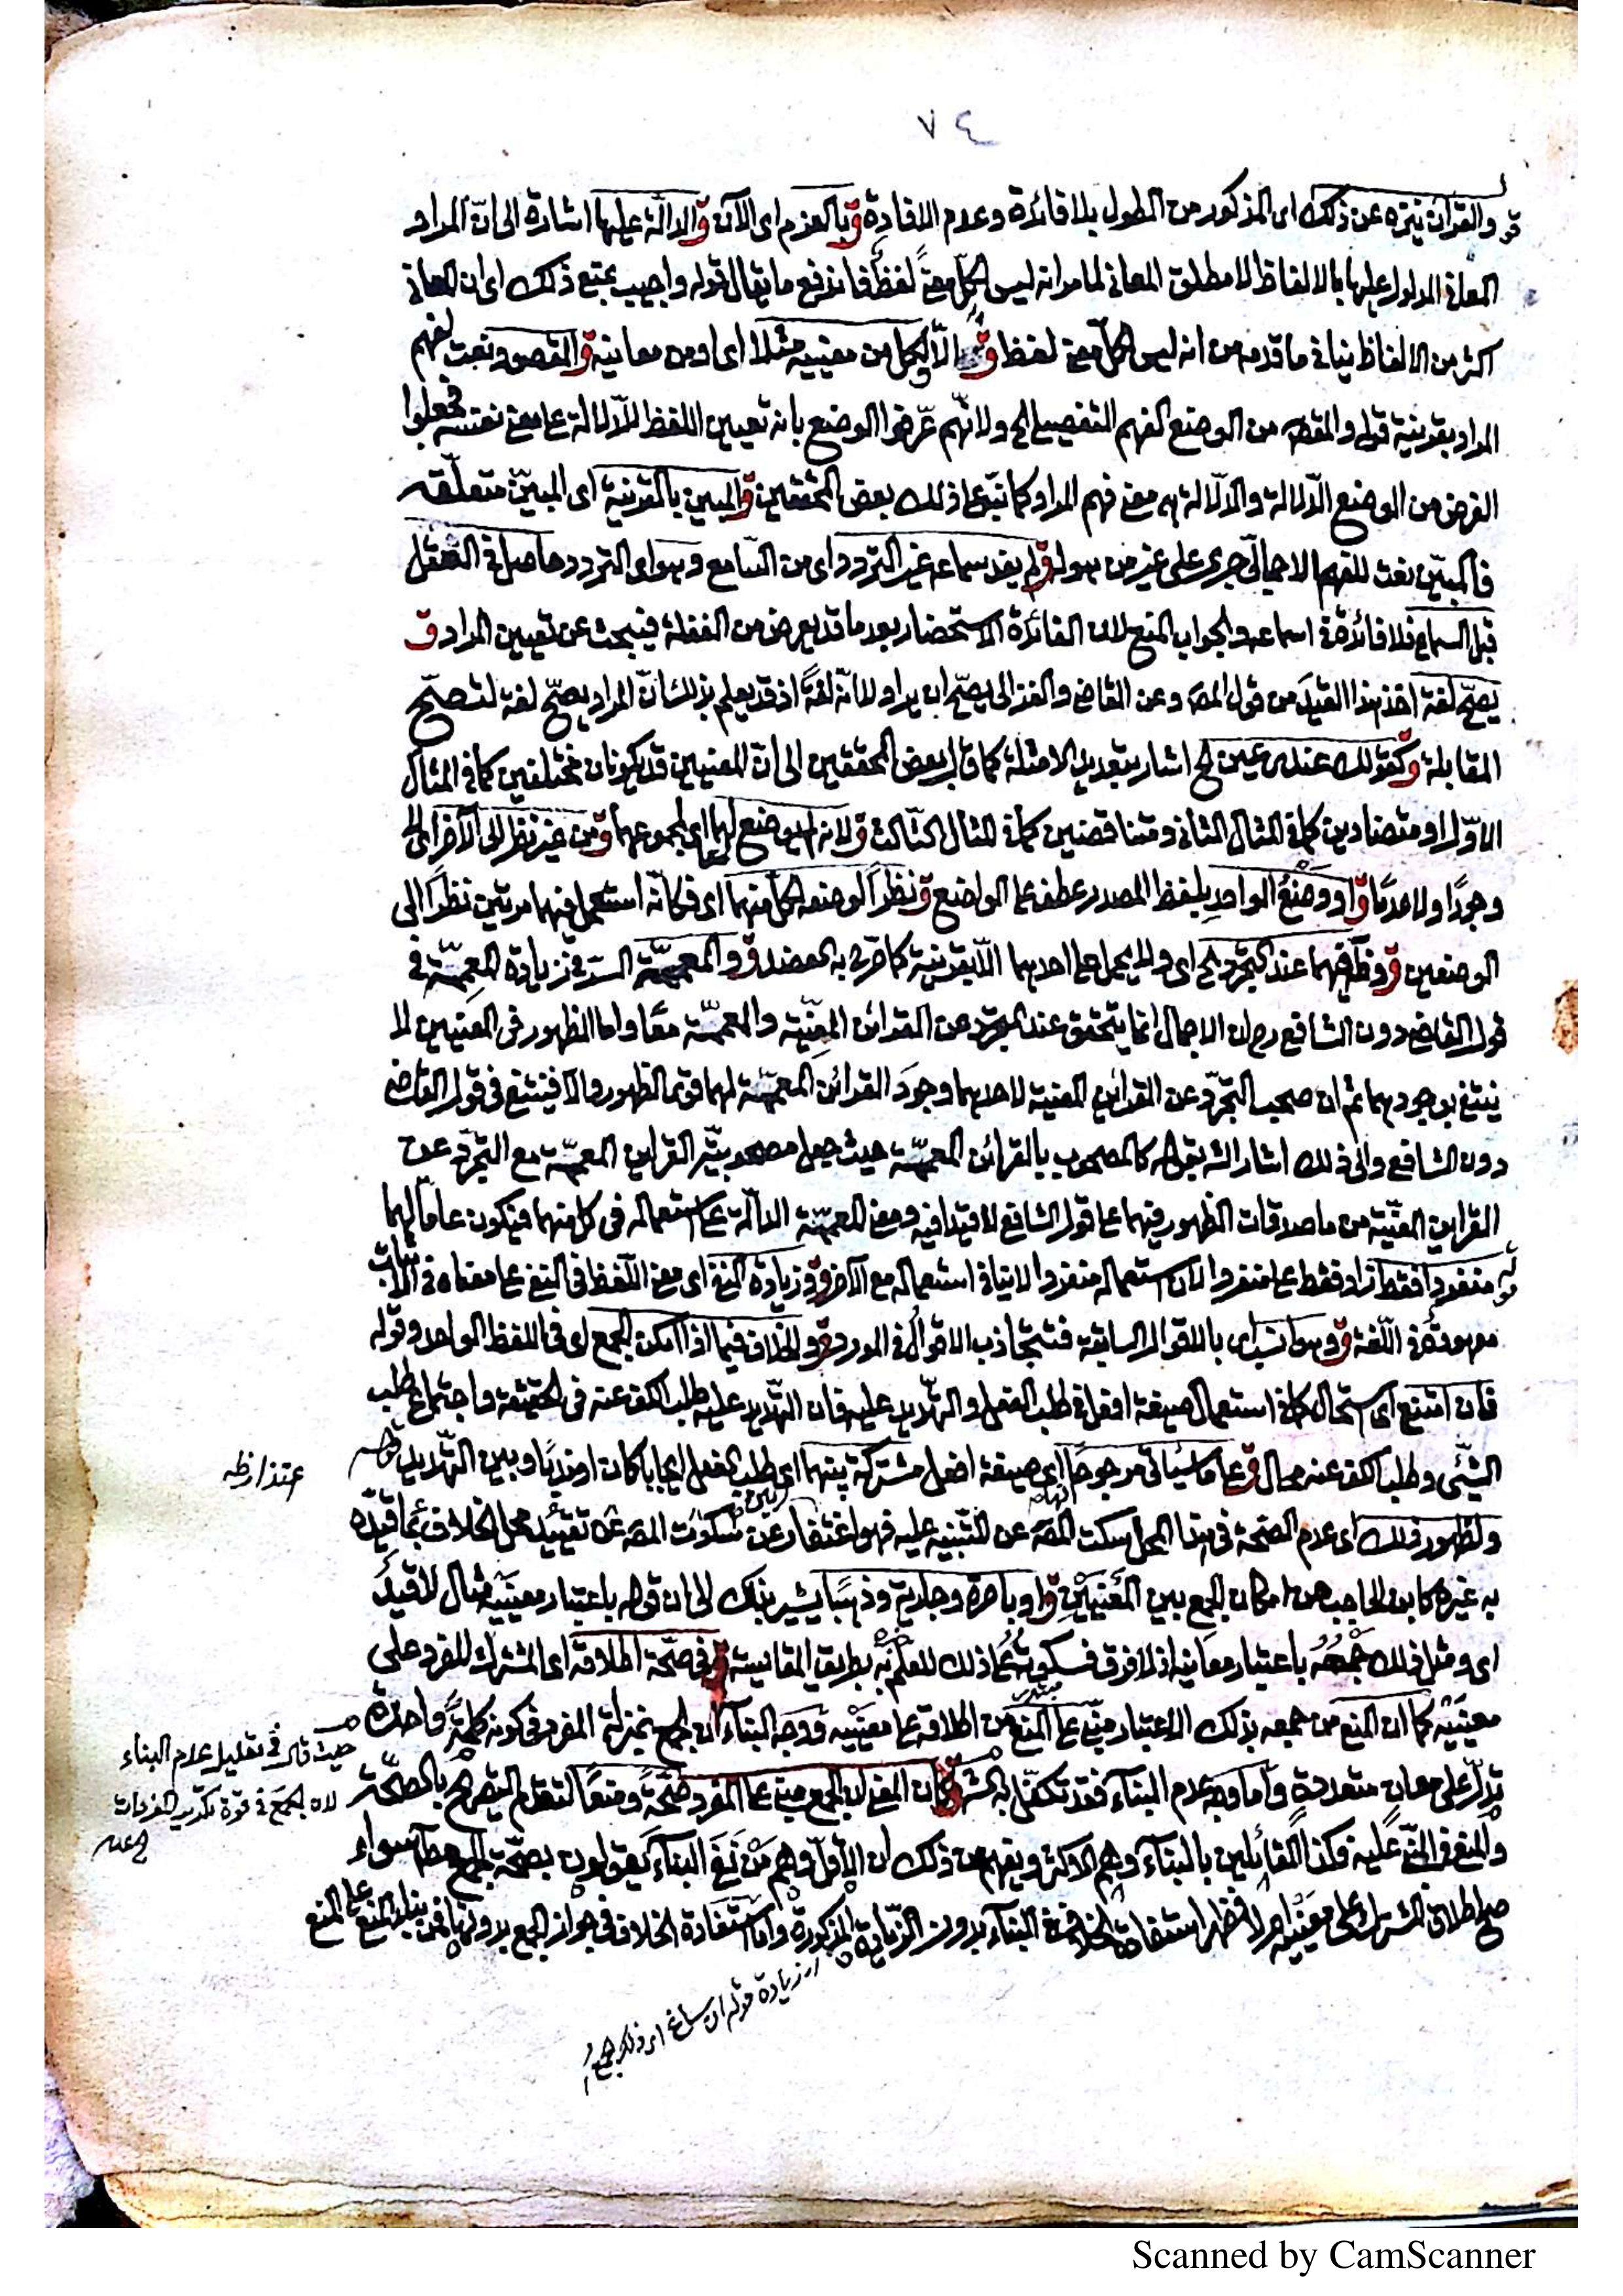 ٧٤
قو والقرآن ينزه عن ذلك اى المذكور من الطول بلا فائدة وعدم الافادة ق بالعزم اى الآن ق الدالة عليها اشارة الى ان المراد
المعانى المدلول عليها بالالفاظ لا مطلق المعانى لما مر انه ليس لكل معنىً لفظ فاندفع ما يقال قوله واجيب بمنع ذلك اى ان المعانى
اكثر من الالفاظ ينافى ما قدمه من انه ليس لكل معنى لفظ ق الا لكل من معنييه مثلا اى او من معانيه ق المقصود نعت لفهم
المراد بقرينة قوله والمقصه من الوضع الفهم التفصيلى الخ ولانهم عرفوا الوضع بانه تعيين اللفظ للدلالة على معنى بنفسه فجعلوا
الغرض من الوضع الدلالة والدلالة هى معنى فهم المراد كما نبه على ذلك بعض المحققين ق المبين بالقرينة اى المبين متعلقه
فالمبين نعت للفهم الاجمالى جرى على غير من هو له ق لم يفد سماعه غير التردد اى من السامع وهو اى التردد حاصل فى التعقل
قبل السماع فلا فائدة فى اسماعه والجواب المنع لان الفائدة الاستحضار بعد ما قد يعرض من الغفلة فيبحث عن تعيين المراد ق
يصح لغة اخذ هذا القيد من قول المصه وعن القاضى والغزالى يصح ان يراد لا انه لغةً اذ قد يعلم بذلك ان المراد يصح لغة لتصح
المقابلة ق كقولك عندى عين الخ اشار بتعديد الامثلة كما قال بعض المحققين الى ان المعنيين قد يكونان مختلفين كما فى المثال
الاول او متضادين كما فى المثال الثانى ومتناقضين كما فى المثال الثالث ق لانه لم يوضع لهما اى لمجموعهما ق من غير نظر الى الآخر اى لا
وجودًا ولا عدمًا ق او وضع الواحد بلفظ المصدر عطف على الواضع ق نظرا لوضعه لكل منهما اى فكانه استعمل فيهما مرتين نظرا الى
الوضعين ق وظاهر فيهما عند التجرد الخ اى ولا يحمل على احدهما الا بقرينة كما صرح به العضد ق والمعممة السر فى زيادة المعممة فى
قول القاضى دون الشافعى رح ان الاجمال انما يتحقق عند التجرد عن القرائن المعينة والمعممة معًا واما الظهور فى المعنيين لا
ينتفى بوجودهما ثم ان صحب التجرد عن القرائن المعينة لاحدهما وجودَ القرائن المعممة لهما قوى الظهور والا فينتفى فى قول القاضى
دون الشافعى والى ذلك اشار الشه بقوله كالمصحوب بالقرائن المعممة حيث جعل مصحوبية القراين المعممة مع التجرد عن
القراين المعينة من ماصدقات الظهور فيهما على قول الشافعى لا قيدا فيه ومعنى المعممة الدالة على استعماله فى كل منهما فيكون عاما لهما
قوله منفردا فقط زاد فقط على منفردا لان استعماله منفردا لا ينافى استعماله مع الآخر ق وزيادة النفى اى معنى اللفظ فى النفى على معناه فى الاثبات
معهودة فى اللغة ق وهو انسب اى بالاقوال السابقة فتتجاذب الاقوال فى المورد ق والخلاف فيما اذا امكن الجمع اى فى اللفظ الواحد وقوله
فان امتنع اى استحال كما فى استعمال صيغة افعل فى طلب الفعل والتهديد عليه فان التهديد عليه طلب الكف عنه فى الحقيقة واجتماع طلب
الشئى وطلب الكف عنه محال ق على ما سياتى مرجوحا اى صيغة افعل مشتركة بينهما اى طلب الفعل ايجابا كان او ندبًا وبين التهديد
ولظهور ذلك اى عدم الصحة فى هذا المحل سكت المصه عن التنبيه عليه فهو اعتذار عن سكوت المصه عن تقييد محل الخلاف بما قيده
اعتذار ظه
به غيره كابن الحاجب من امكان الجمع بين المعنيين ق او باصرة وجارية وذهبًا يشير بذلك الى ان قوله باعتبار معنييه مثال لا قيد
اى ومثل ذلك جمعُه باعتبار معانيه اذ لا فرق فسكوته عن ذلك للعلم به بطريق المقايسة ق فى صحة اطلاقه اى المشترك المفرد على
معنييه كما ان المنع من جمعه بذلك الاعتبار مبنى على المنع من اطلاقه على معنييه ووجه البناء ان الجمع بمنزلة المفرد فى كونه كلمةً واحدة
تدل على معان متعددة واما وجه عدم البناء فقد تكفل به الشه ق كان المعنى ان الجمع مبنى على المفرد صحةً ومنعًا لتقدم التصريح بالصحة
حيث قال فى تعليل عدم البناء
لان الجمع فى قوة تكرير المفردات
والمنع فى المبنى عليه فكذا القائلين بالبناء وهم الاكثر ويفهم من ذلك ان الاقل وهم من نفى البناء يقولون بصحة الجمع مطلقا سواء
صح اطلاق المشترك على معنييه ام لا فظهر استفادة الخلاف فى البناء بدون الزيادة المذكورة واما استفادة الخلاف فى جواز الجمع بدونها فمن بناء المنع على المنع
اى زيادة قوله ان ساغ اى ذلك الجمع